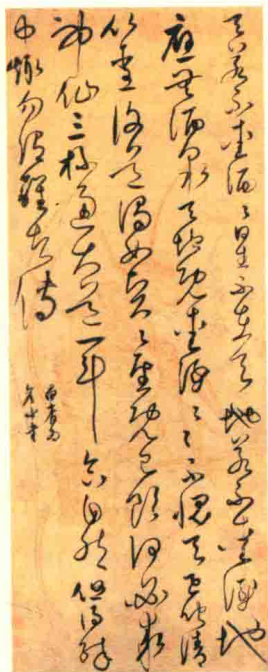 天若不愛酒〻星不在天地若不愛酒地
應無酒泉天地既愛酒〻〻不愧天已聞清
比聖復道濁如賢〻聖既已飲何必求
神仙三杯通大道一斗合自然但得醉
中趣勿為醒者傳